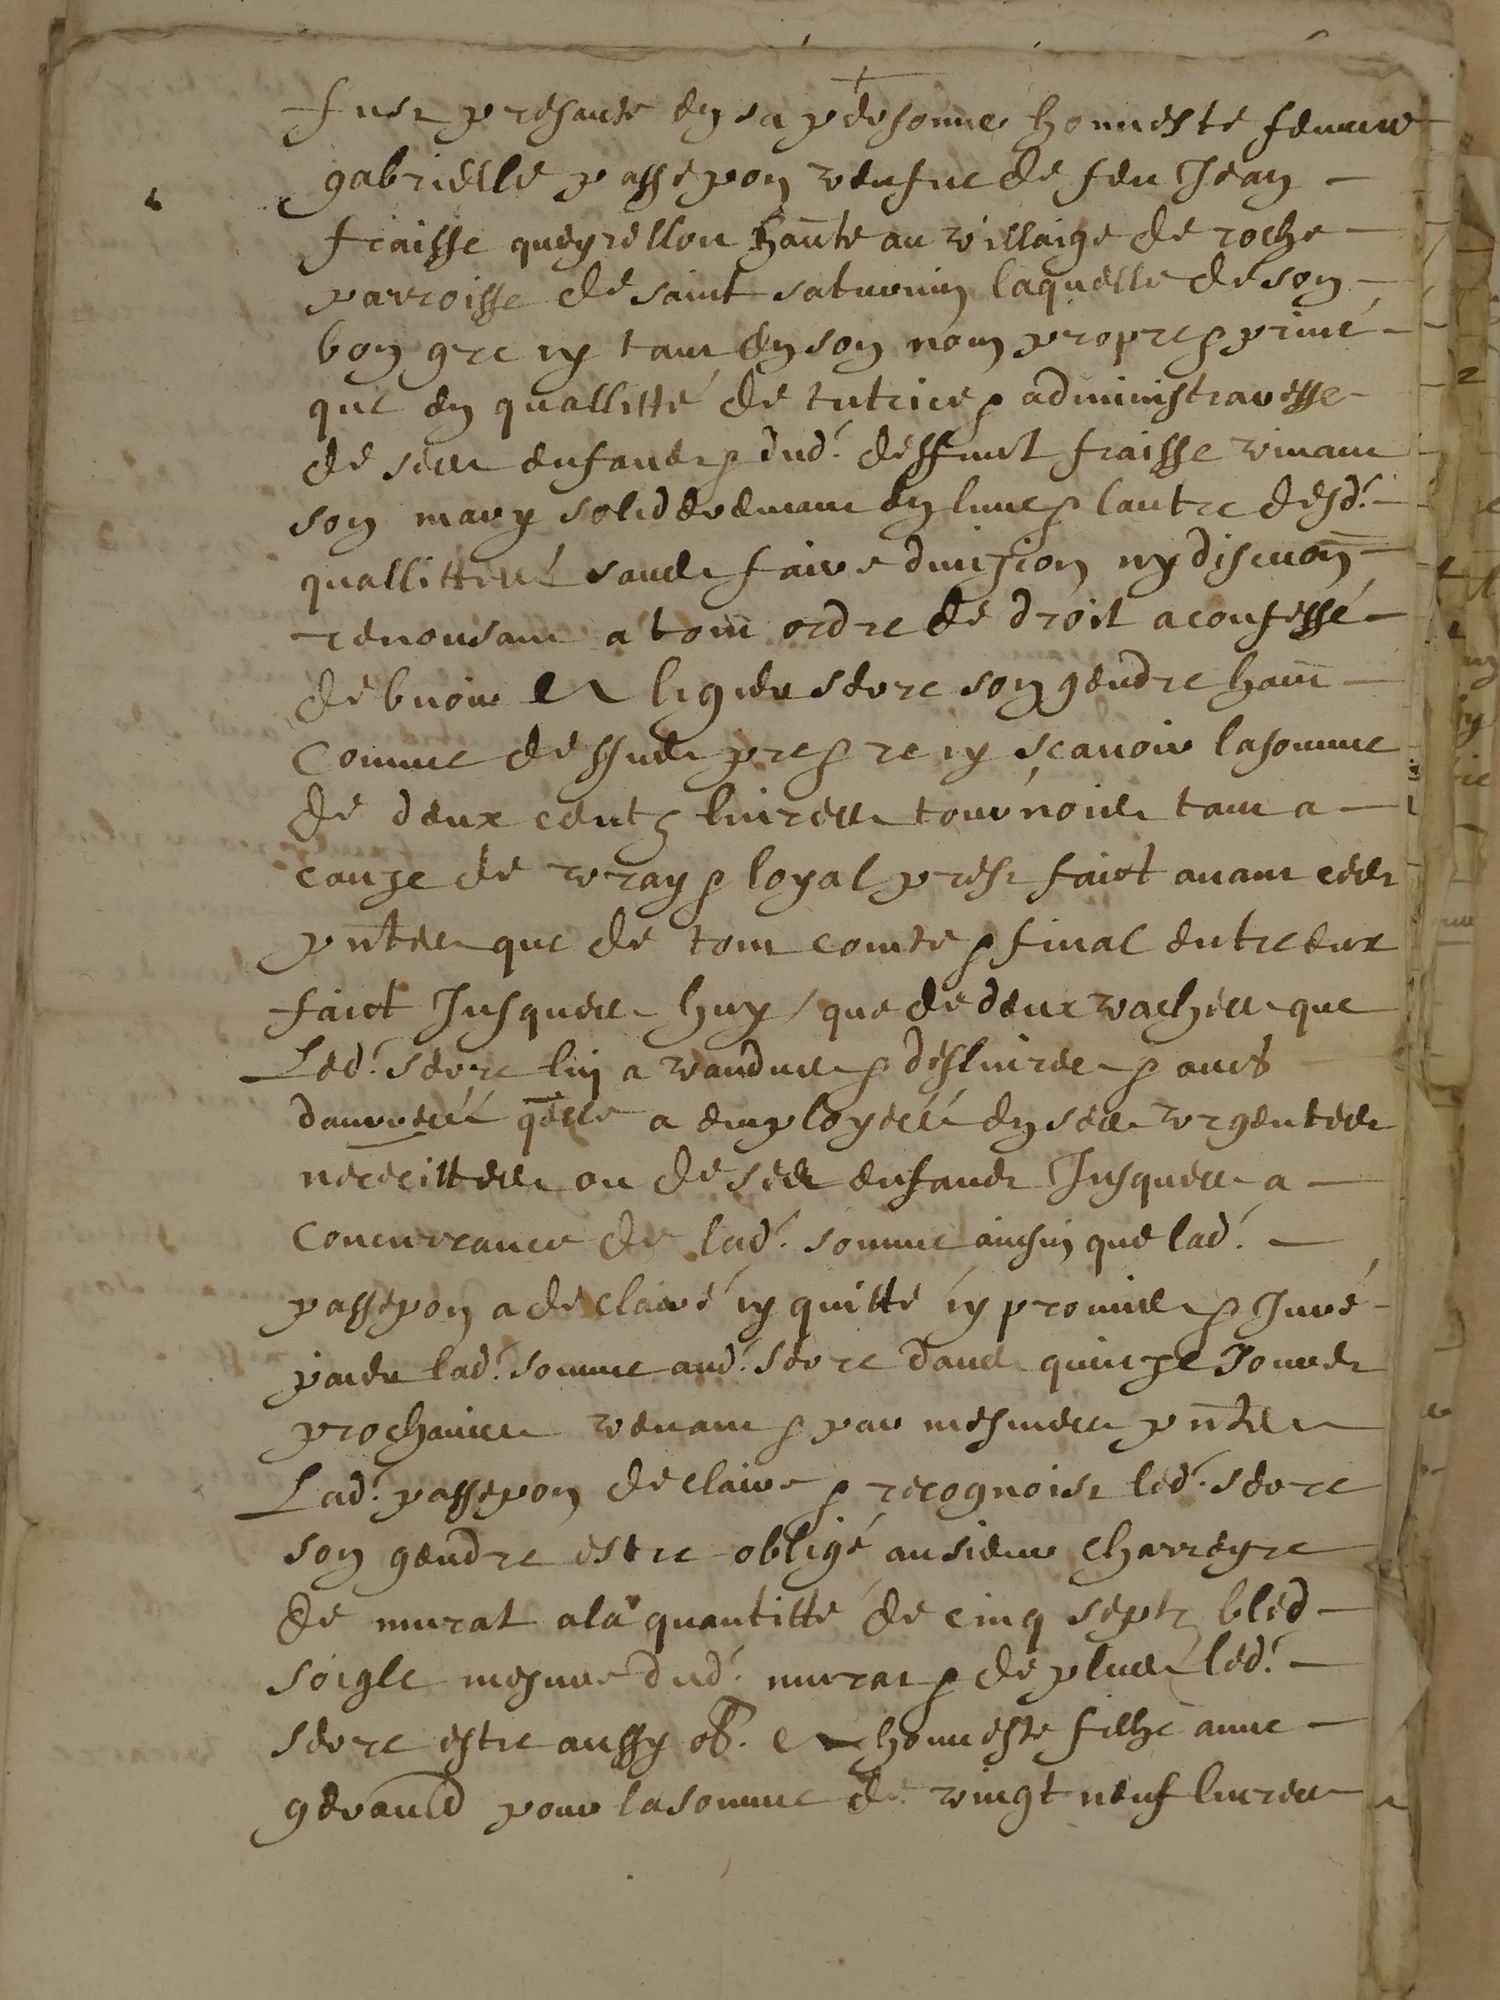 fust presante en sa personne honneste femme
gabrielle passepon veufue de feu Jean
fraisse queyrellou hante au villaige de roche
parroisse de saint saturnin laquelle de son
bon gre tant en son nom propre & privé
que en quallitté de tutrice & administraresse
de ses enfans & dud. deffunct fraisse vivant
son mary solideremant en lune & lautre desd.
quallittes sans faire division ny discuon
renonsant a tout ordre de droit a confessé
debvoir a serre son gendre hant
comme dessus pre & sçavoir la somme
de deux centz livres tournois tant a
cauze de vray & loyal prest faict avant ces
pntes que de tout comte & final entre eux
faict Jusques huy que de deux vaches que
Led. serre luy a vandues & deslivrees & aues
qelle a employés en ses urgentes
nececittes ou de ses enfans Jusques a
concurrance de lad. somme ainsin que lad.
passepon a declairé quitté promis & Juré
paier lad. somme aud. serre dans quinze Jours
prochains venant & par mesmes pntes
Lad. passepon declaire & recognoist led. serre
son gendre estre obligé au sieur Charreyre
de murat a la quantitté de cinq septz bled
soigle mesure dud. murat & de plus led.
serre estre aussy ob. a honneste filhe anne
geraud pour la somme de vingt neuf livres